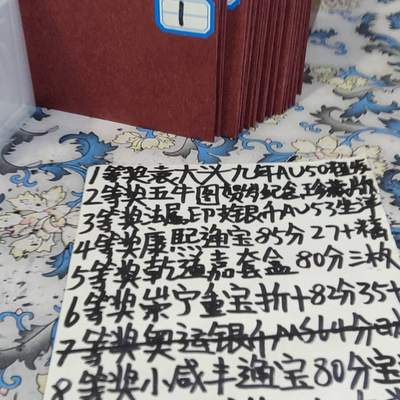 1
1等奖袁大头九年AU50
2等奖五牛图
3等奖法属印支银币AU53
4等奖康熙通宝85分27+
5等奖乾道嘉套盒80分三枚
6等奖崇宁重宝折十82分35+
7等奖奥运银币MS64分
8等奖小咸丰通宝80分宝